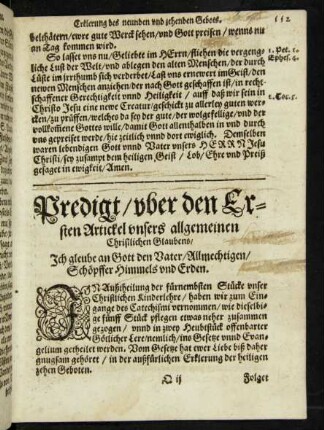 Erklerung des neunden vnd zehenden Gebots. 112
belthätern/ewre gute Werck sehen/vnd Gott preisen/wenns nu
an Tag kommen wird.
So lasset vns nu/Geliebte im HErrn/fliehen die vergeng-
liche Lust der Welt/vnd ablegen den alten Menschen/der durch
Lüste im jrrthumb sich verderbet/Last vns ernewrt im Geist/den
newen Menschen anziehen/der nach Gott geschaffen ist/in recht-
schaffener Gerechtigkeit vnnd Heiligkeit/auff daß wir sein in
Christo Jesu eine newe Creatur/geschickt zu allerley guten werc-
ken/zu prüffen/welches da sey der gute/der wolgefellige/vnd der
vollkom̃ene Gottes wille/damit Gott allenthalben in vnd durch
vns gepreiset werde/hie zeitlich vnnd dort ewiglich. Demselben
waren lebendigen Gott vnnd Vater vnsers HERRN Jesu
Christi/sey zusampt dem heiligen Geist/Lob/Ehre vnd Preiß
gesaget in ewigkeit/Amen.
1. Pet. 1.
Ephes. 4.
2. Cor. 5.
Predigt/vber den Er-
sten Artickel vnsers allgemeinen
Christlichen Glaubens/
Ich gleube an Gott den Vater/Allmechtigen/
Schöpffer Himmels vnd Erden.
IN Außtheilung der fürnembsten Stücke vnser
Christlichen Kinderlehre/haben wir zum Ein-
gange des Catechismi vernommen/wie dieselbi-
ge fünff Stück pflegen etwas neher zusammen
gezogen/vnnd in zwey Heubtstück offenbarter
Göttlicher Lere/nemlich/ins Gesetze vnnd Euan-
gelium getheilet werden. Vom Gesetze hat ewer Liebe biß daher
gnugsam gehöret/in der außfürlichen Erklerung der heiligen
zehen Geboten.
Q ij Folget